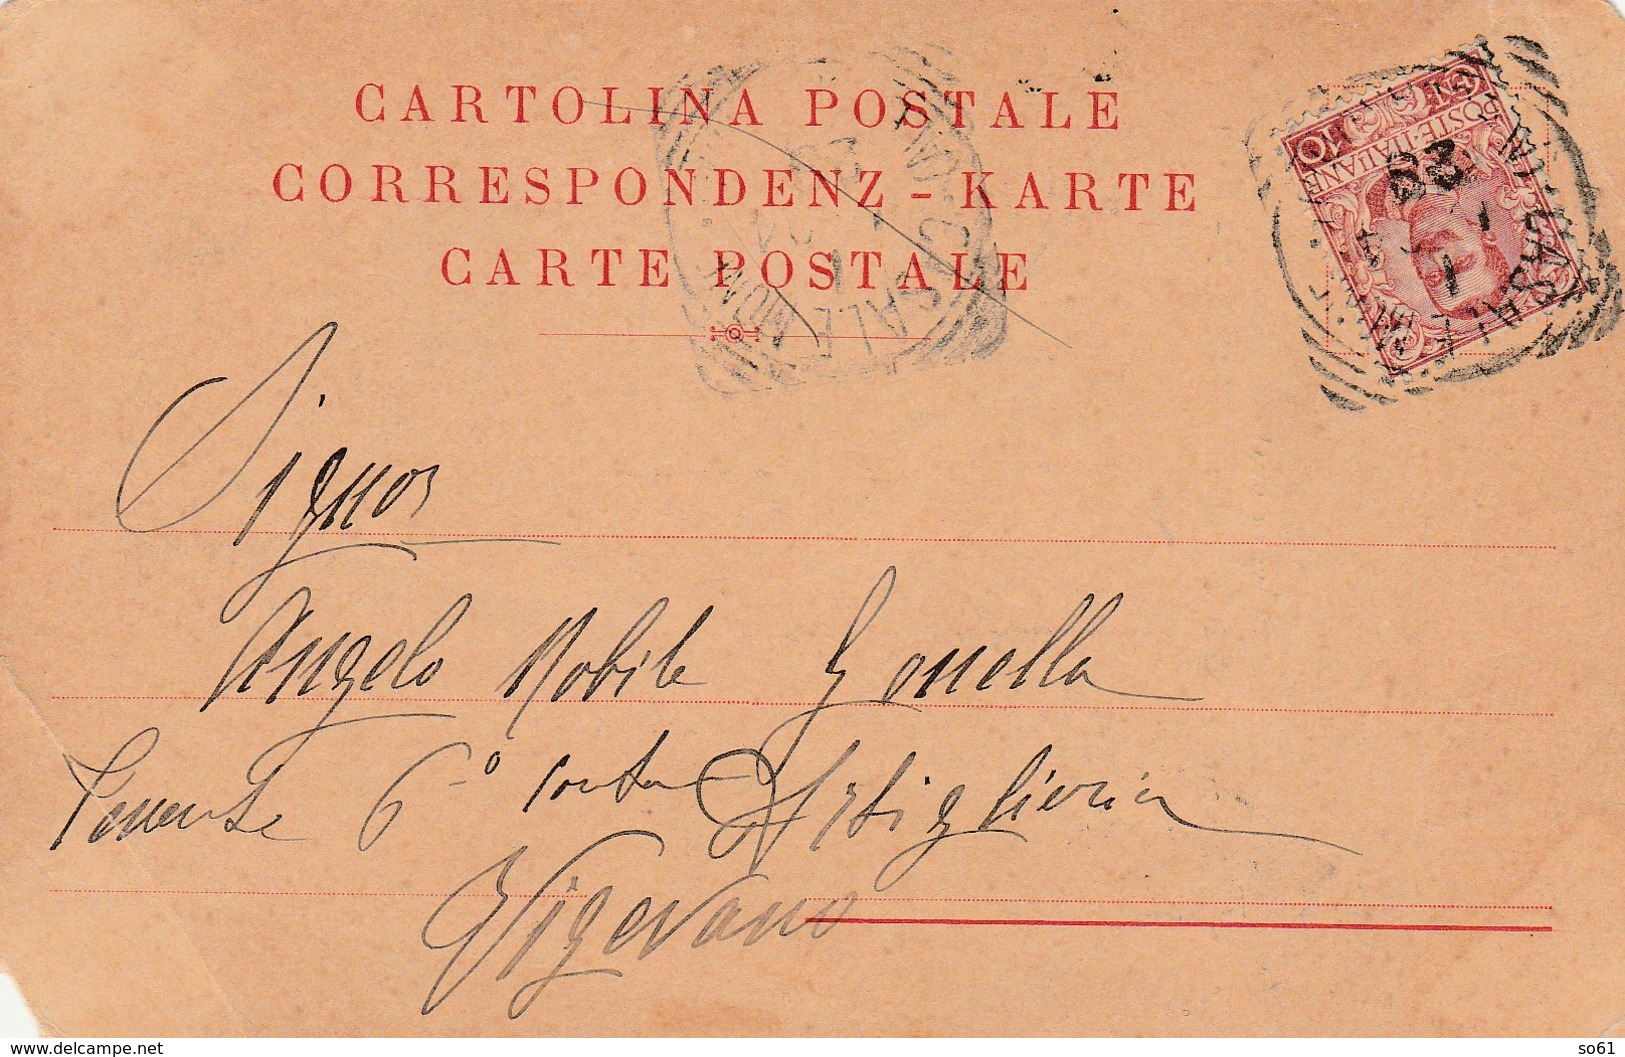 CARTOLINA POSTALE
CORRESPONDENZ - KARTE
CARTE POSTALE
POSTE·ITALIANE
10
CASALE MON
Signor
Angelo Nobile Gonella
Tenente 6º Artiglieria
Vigevano
www.delcampe.net
so61